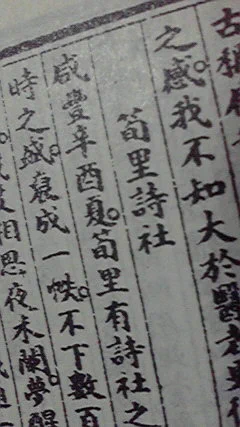 古
之感。我不知大於醫者
筍里詩社
咸豐辛酉夏。筍里有詩社之
時之盛。裒成一帙。不下數百
相思夜未闌夢醒